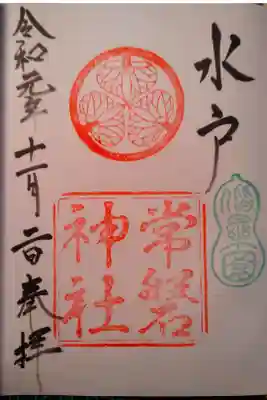 水戸
常磐
神社
偕楽園
令和元年十一月二日奉拝